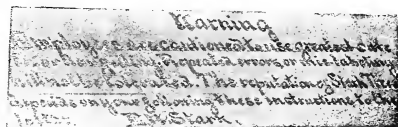 Warning
Employees are cautioned to use greatest care
repeated errors or mis-labeling
will not be tolerated. The reputation of Stark Trees
depends on your following these instructions to the
letter. Stark